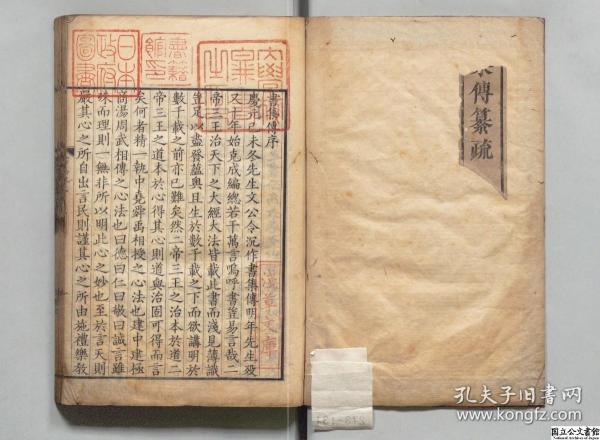 傳纂疏
書集傳序
慶元己未冬先生文公令沉作書集傳明年先生歿
又十年始克成編總若干萬言嗚呼書豈易言哉二
帝三王治天下之大經大法皆載此書而淺見薄識
豈足以盡發蘊奧且生於數千載之下而欲講明於
數千載之前亦已難矣然二帝三王之治本於道二
帝三王之道本於心得其心則道與治固可得而言
矣何者精一執中堯舜禹相授之心法也建中建極
商湯周武相傳之心法也曰德曰仁曰敬曰誠言雖
殊而理則一無非所以明此心之妙也至於言天則
嚴其心之所自出言民則謹其心之所由施禮樂教
日本
政府
圖書
書籍
館印
孔夫子旧书网
www.kongfz.com
国立公文書館
National Archives of Japan